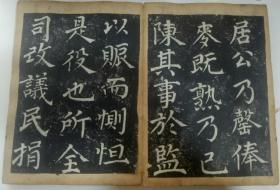 居公乃罄俸
麥既熟乃已
陳其事於監
以賑而惻怛
是役也所全
司改議民捐